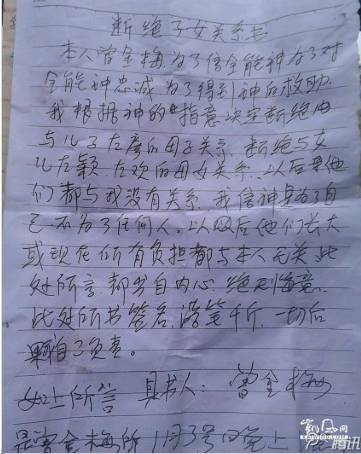 断绝子女关系书
本人曾金梅为了信全能神为了对
全能神忠诚为了得到神的救助
我根据神的"指意决定断绝
与儿子左彦的母子关系.断绝与女
儿左颖左欢的母女关系.以后里他
们都与我没有关系.我信神是为了自
己不为了任何人.以后他们长大
或现在所有负担都与本人无关.此
处所言都发自内心绝不悔意.
此处所书签名,落笔千斤.一切后
果自了负责.
如上所言 具书人:曾金梅
曾金梅所 1月3号 晚上
凯风网
kaiwind.com
腾讯